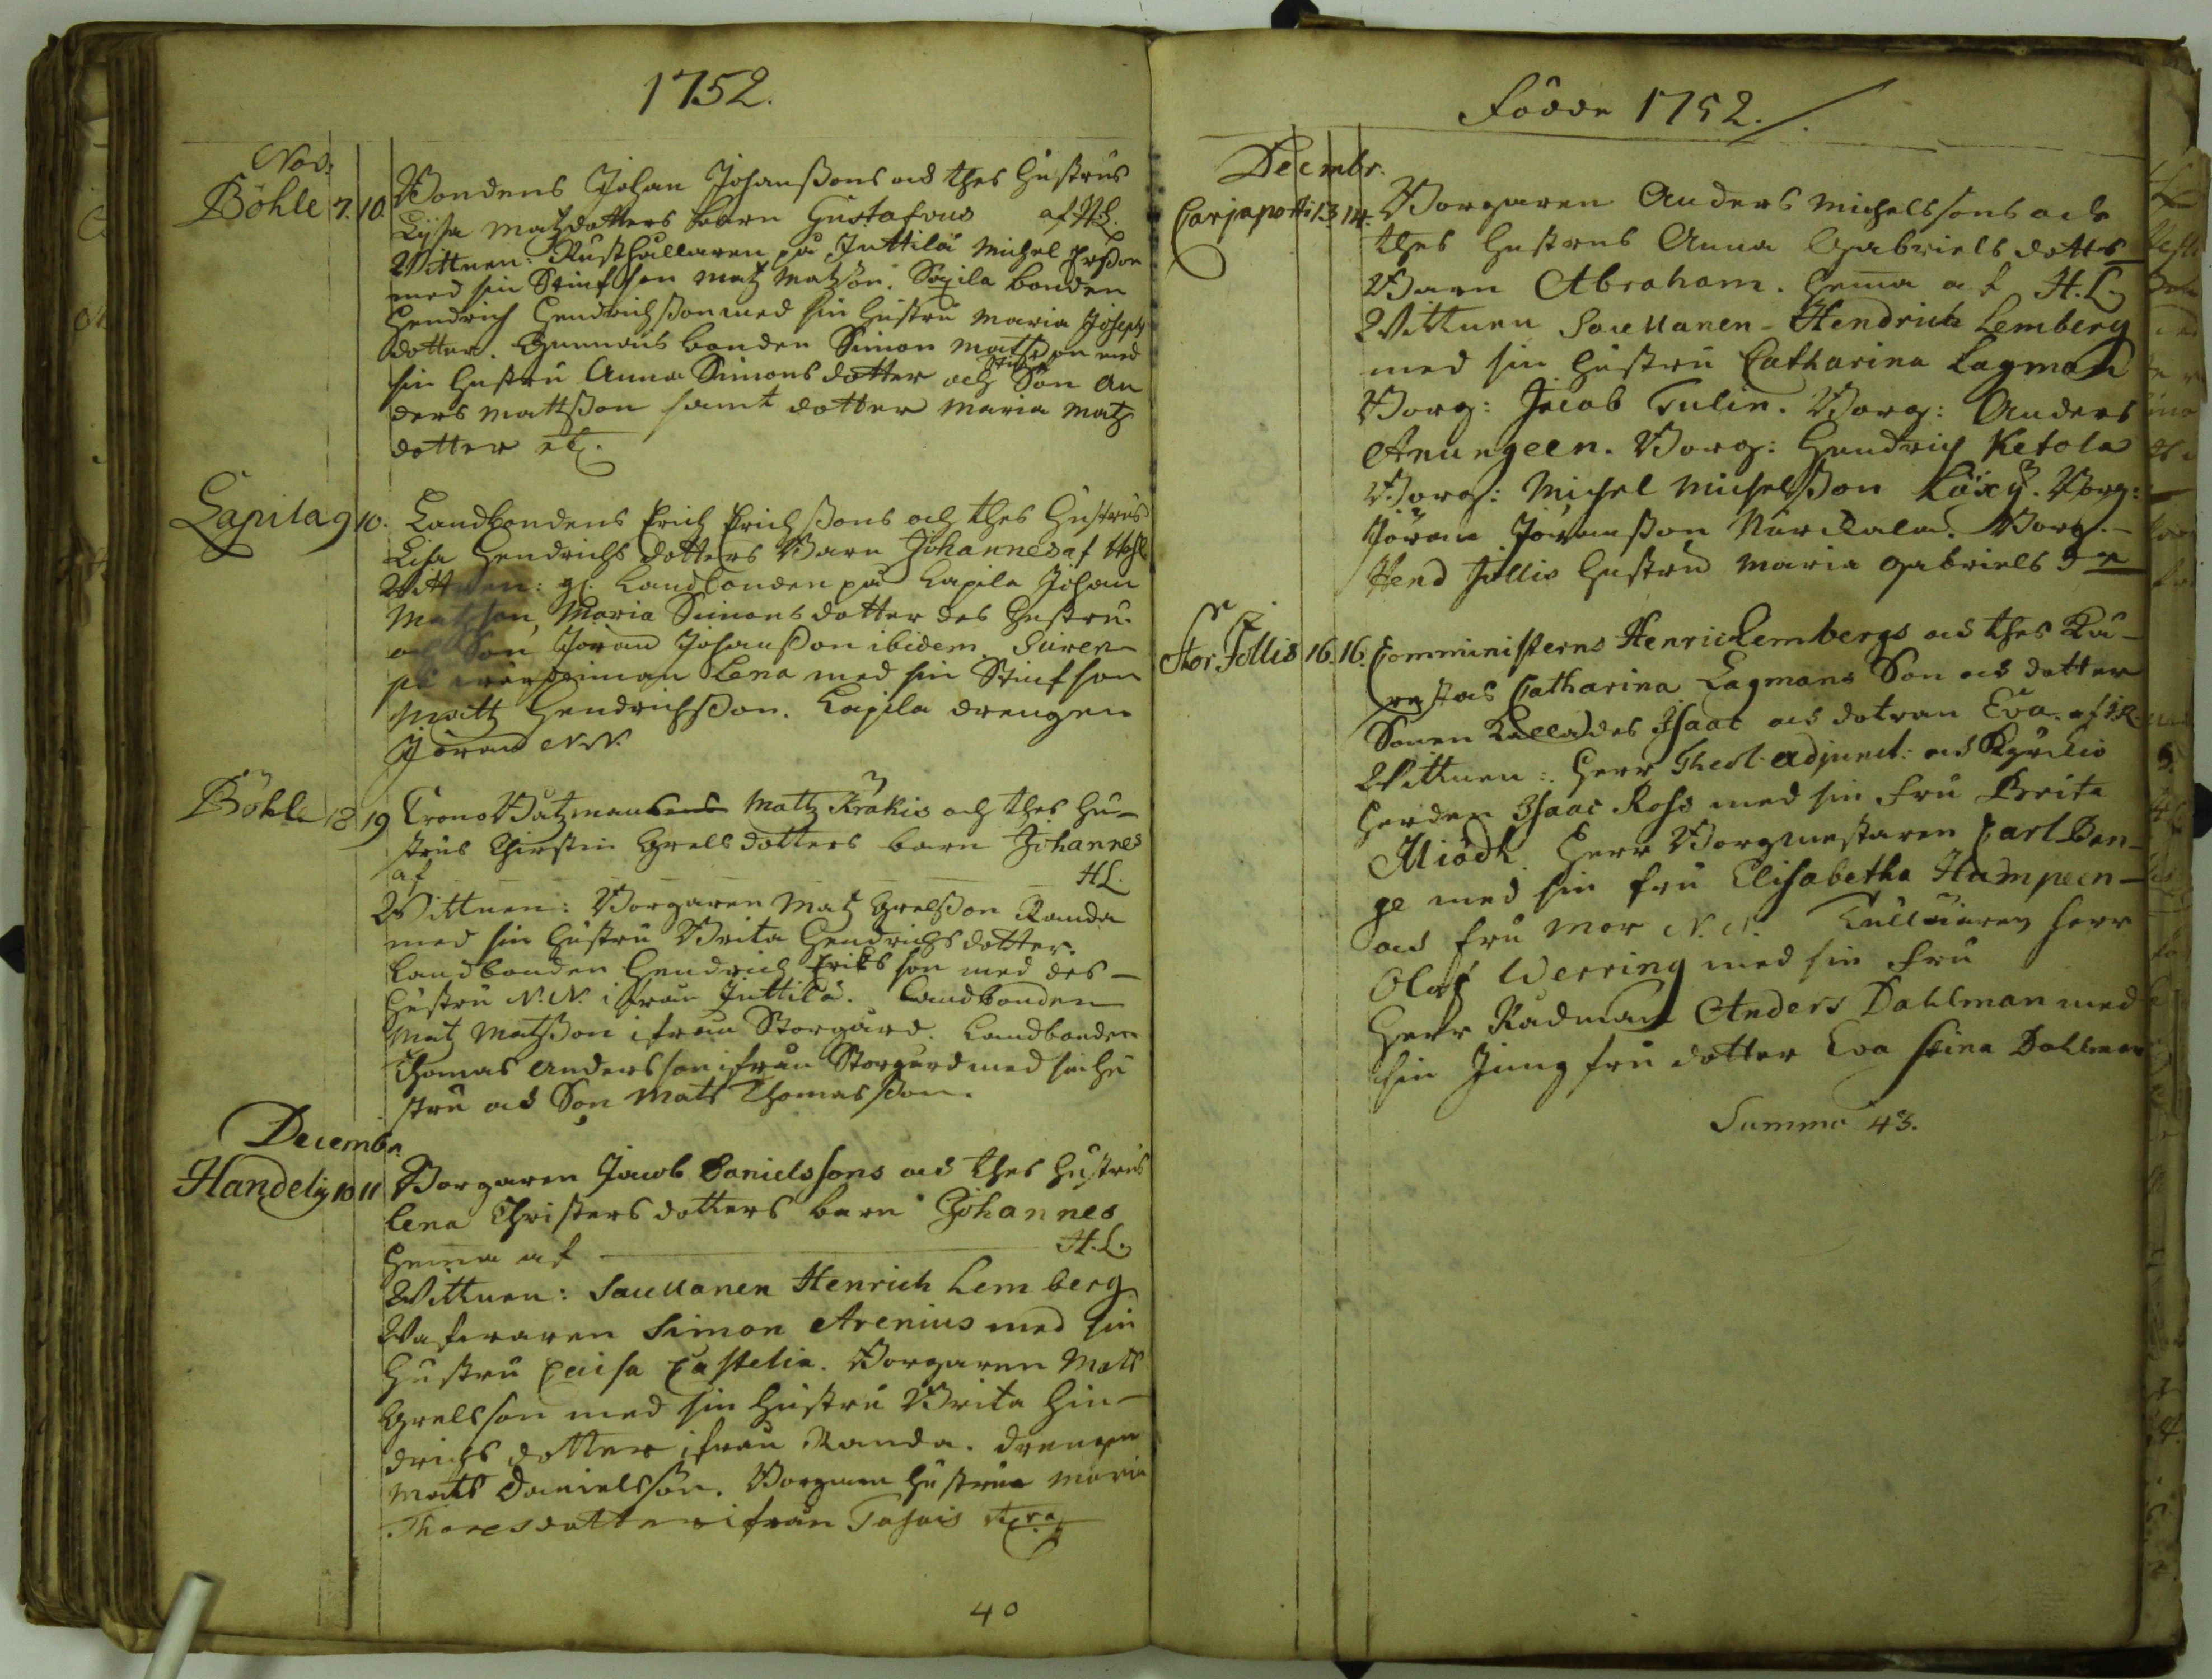 1752.
Nov:
Böhle 7. 10. Bondens Johan Johanßons och thes Hustrus
Lijsa Matzdotters barn Gustafvus af H.L.
Wittnen: Rusthållaren på Juttila Michel Erßon
med sin Stiufson Matz Matzson. Sapila bonden
Hendrich Hendrichßon med sin Hustru Maria Josephs
dotter. bonden Simon Mattßon med
sin Hustru Anna Simons dotter och Son An
ders Mattßon samt dotter Maria Matz
dotter etc.
Lapila 9 10. Landbondens Erich Erichßons och thes Hustrus
Lisa Hendrichs dotters Barn Johannes af
Wittnen: gl. Landbonden på Lapila Johan
Matzson, Maria Simons dotter des Hustru.
och Son Jöran Johanßon ibidem.
Lena med sin Stiufson
Matz Hendrichßon. Lapila drengen
Jöran N.N.
Böhle 18 19 Crono Båtzmans Matz Krakis och thes Hu-
strus Chirstin Grels dotters barn Johannes
af H.L.
Wittnen: Borgaren Matz Grelßon Randa
med sin Hustru Brita Hendrichsdotter.
Landbonden Hendrich Erikson med des
Hustru N.N. ifrån Juttila. Landbonden
Mat Matßon ifrån Storgård. Landbonden
Thomas Andersson ifrån Storgård med sin Hu
stru och Son Mats Thomasßon.
Decembr.
Handelij 10 11 Borgaren Jacob Danielssons och thes Hustrus
Lena Christers dotters barn Johannes
Hema af H.L.
Wittnen: Sacellanen Henrich Lemberg
Simon Arenius med sin
Hustru Caisa Castelia. Borgaren Mats
Grelsson med sin Hustru Brita Hin-
drichs dotter ifrån Randa. drengen
Mats Danielsson. Borgaren Hustrun Maria
Thoresdotter ifrån
40
Födde 1752.
Decmbr.
Carjapotti 13. 14. Borgaren Anders Michelssons och
thes Hustrus Anna Gabriels dotters
Barn Abraham. Hema af H.L.
Wittnen Sacellanen Hendrich Lemberg
med sin Hustru Catharina Lagman
Borg: Jacob Tulin. Borg: Anders
Anungeen. Borg: Hendrich Ketola
Borg: Michel Michelßon. Borg:
Jöran Jöranßon Närckala. Borg.
Hend Jollis Hustru Maria Gabriels dr
Stor Jollis 16. 16. Comministerns Henric Lembergs och thes Kä-
restas Catharina Lagmans Son och dotter
Sonen Kallades Isaac och dotren Eva. af I.R.
Wittnen: Herr Theol. adjunct: och Kyrckio
Herden Isaac Ross med sin Fru Brita
Miödh. Herr Borgmestaren Carl Ban-
ge med sin fru Elisabetha Hampeen
och fru Mor N.N. Tullnären herr
Olof Werring med sin Fru
Herr Rådman Anders Dahlman med
sin Jungfru dotter Eva Stina Dahlman
Summa 43.